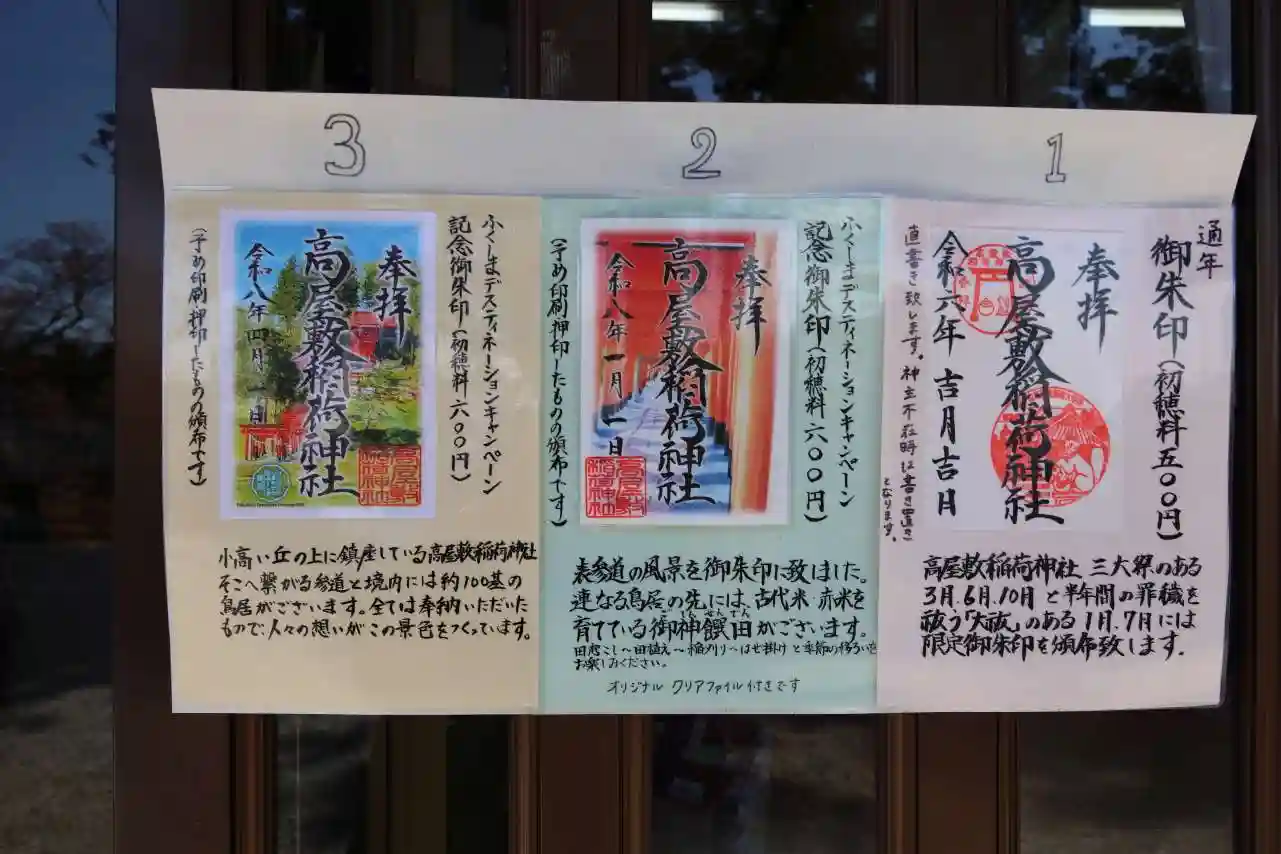 1
通年
御朱印（初穂料五〇〇円）
奉拝
高屋敷稲荷神社
令和六年 吉月吉日
直書き致します。神主不在時は書き置き
となります。
高屋敷稲荷神社 三大祭のある
3月.6月.10月と半年間の罪穢を
祓う「大祓」のある1月.7月には
限定御朱印を頒布致します.
2
ふくしまデスティネーションキャンペーン
記念御朱印（初穂料六〇〇円）
奉拝
高屋敷稲荷神社
令和八年一月一日
高屋敷
稲荷神社
（予め印刷押印したものの頒布です）
表参道の風景を御朱印に致しました。
連なる鳥居の先には、古代米・赤米を
育てている御神饌田がございます。
しんせんでん
田起こし〜田植え〜稲刈り〜はせ掛けと季節の移ろいを
お楽しみください。
オリジナル クリアファイル付きです
3
ふくしまデスティネーションキャンペーン
記念御朱印（初穂料六〇〇円）
奉拝
高屋敷稲荷神社
令和八年四月一日
高屋敷
稲荷神社
（予め印刷押印したものの頒布です）
小高い丘の上に鎮座している高屋敷稲荷神社
そこへ繋がる参道と境内には約100基の
鳥居がございます。全ては奉納いただいた
もので、人々の想いがこの景色をつくっています。